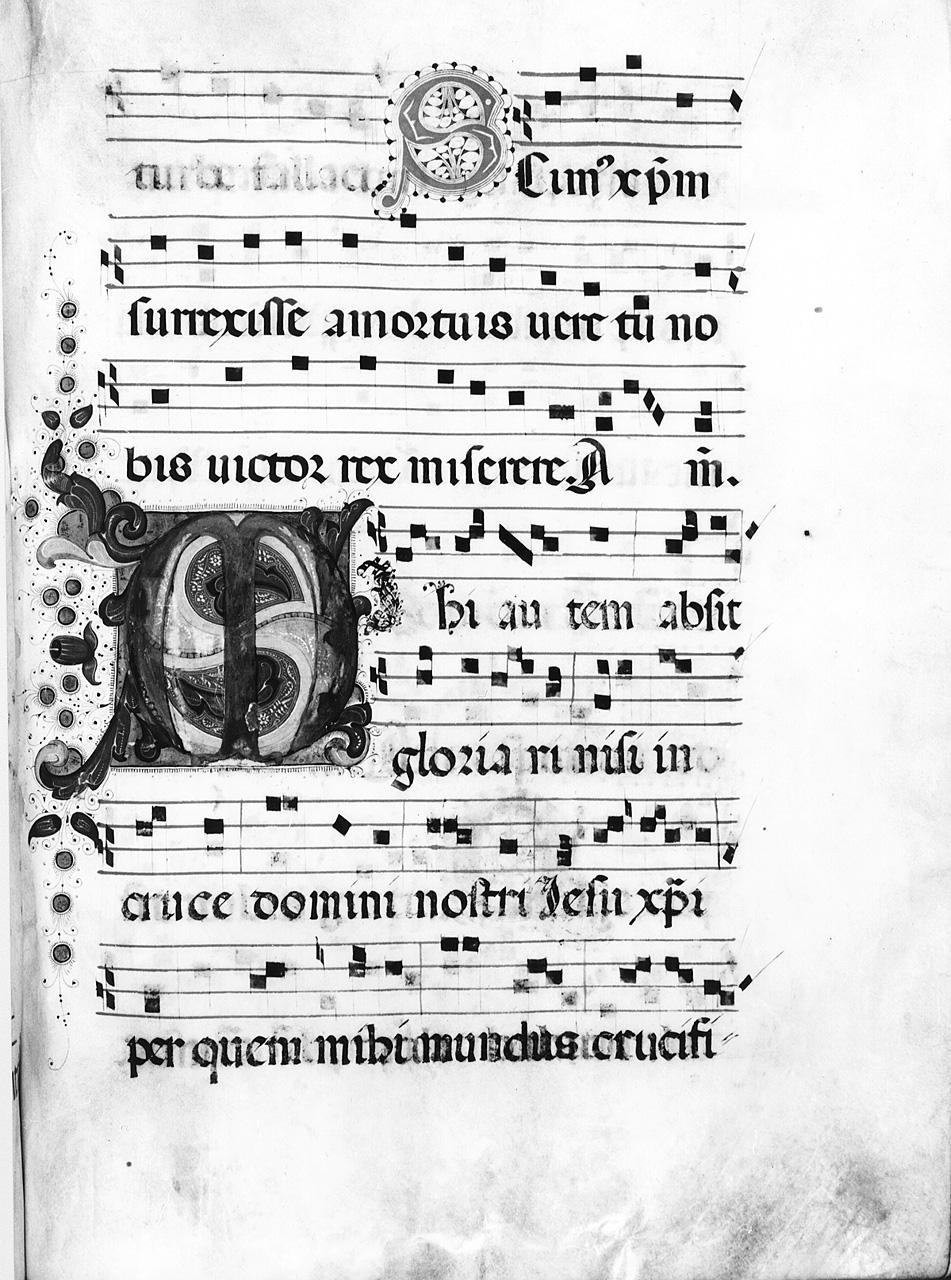 turbe fallaci Scimꝰ xp̄m
surrexisse amortuis uere tū no
bis uictor rex miserere. A m̄.
Mihi au tem absit
gloria ri nisi in
cruce domini nostri Jesu xp̄i
per quem mihi mundus crucifi